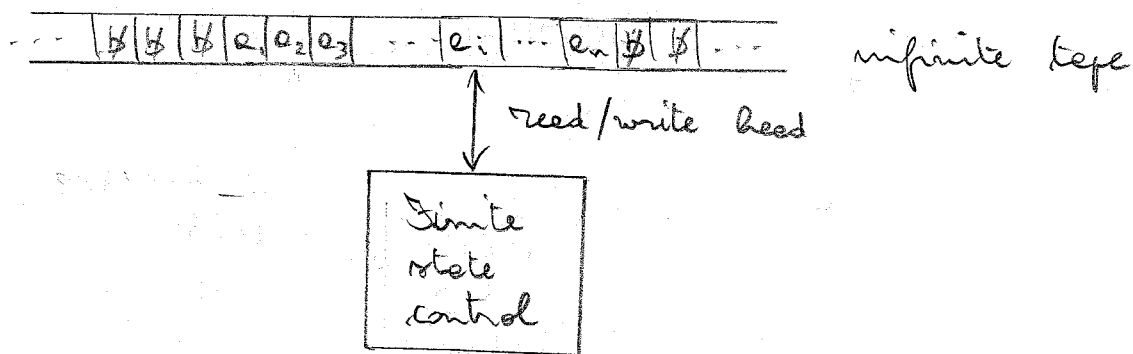 ... ␢ ␢ ␢ a₁ a₂ a₃ ... aᵢ ... aₙ ␢ ␢ ... infinite tape
read/write head
Finite
state
control